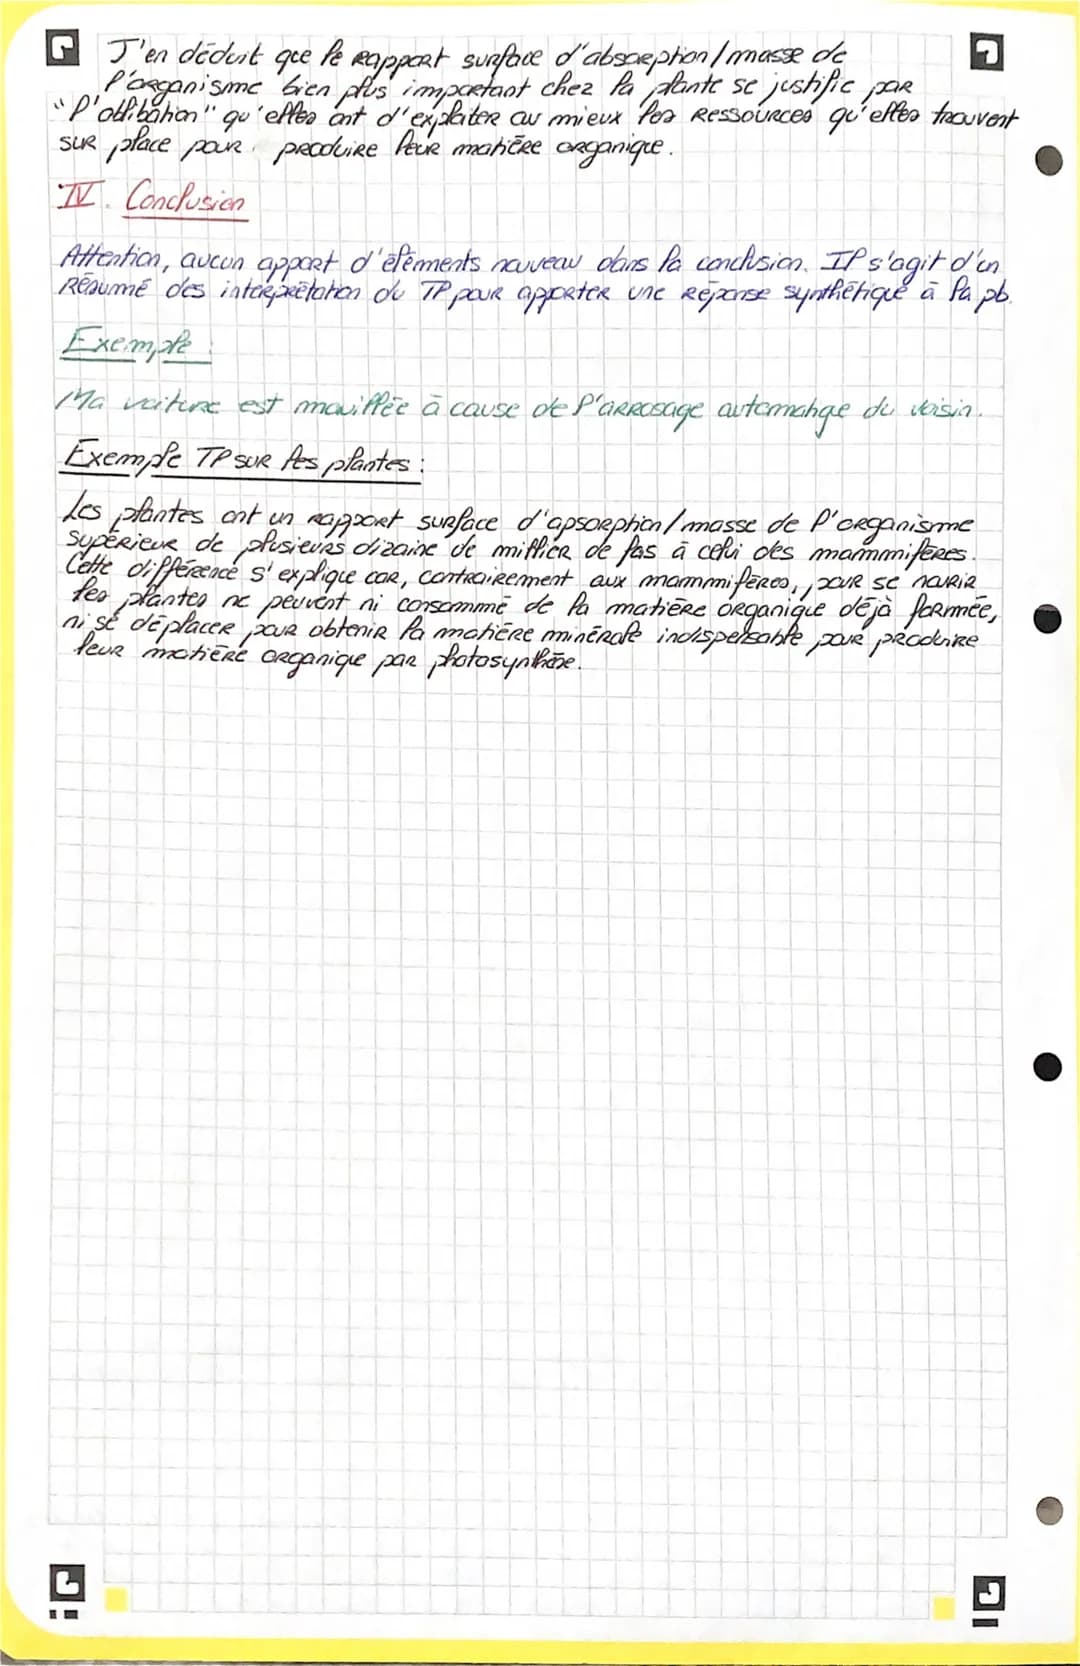 J'en déduit que le rapport surface d'absorption/masse de
l'organisme bien plus important chez la plante se justifie par
"l'oblibation" qu'elles ont d'exploiter au mieux les ressources qu'elles trouvent
sur place pour produire leur matière organique.
IV. Conclusion
Attention, aucun apport d'éléments nouveau dans la conclusion. Il s'agit d'un
Résumé des interprétation du TP pour apporter une réponse synthétique à la pb.
Exemple :
Ma voiture est mouillée à cause de l'arrosage automatique du voisin.
Exemple TP sur les plantes :
Les plantes ont un rapport surface d'apsorption/masse de l'organisme
supérieur de plusieurs dizaine de millier de fois à celui des mammmifères.
Cette différence s'explique car, contrairement aux mammmifères, pour se nourir
les plantes ne peuvent ni consommé de la matière organique déjà formée,
ni se déplacer pour obtenir la matière minérale indispensable pour produire
leur matière organique par photosynthèse.